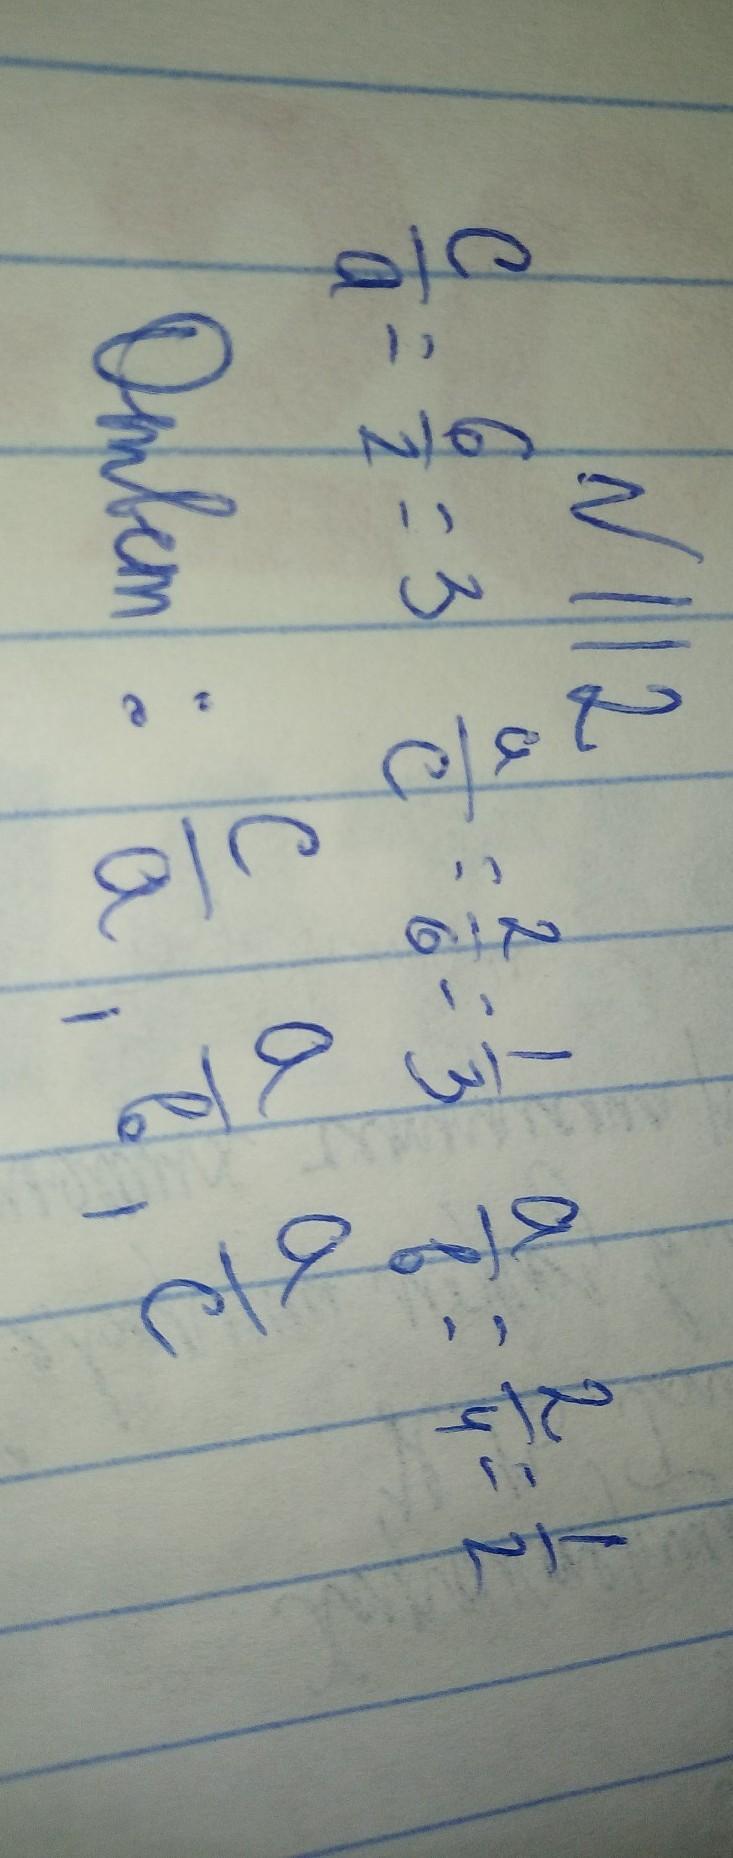 √112
c/a = 6/2 = 3 a/c = 2/6 = 1/3 a/b = 2/4 = 1/2
Ответ: c/a, a/b, a/c